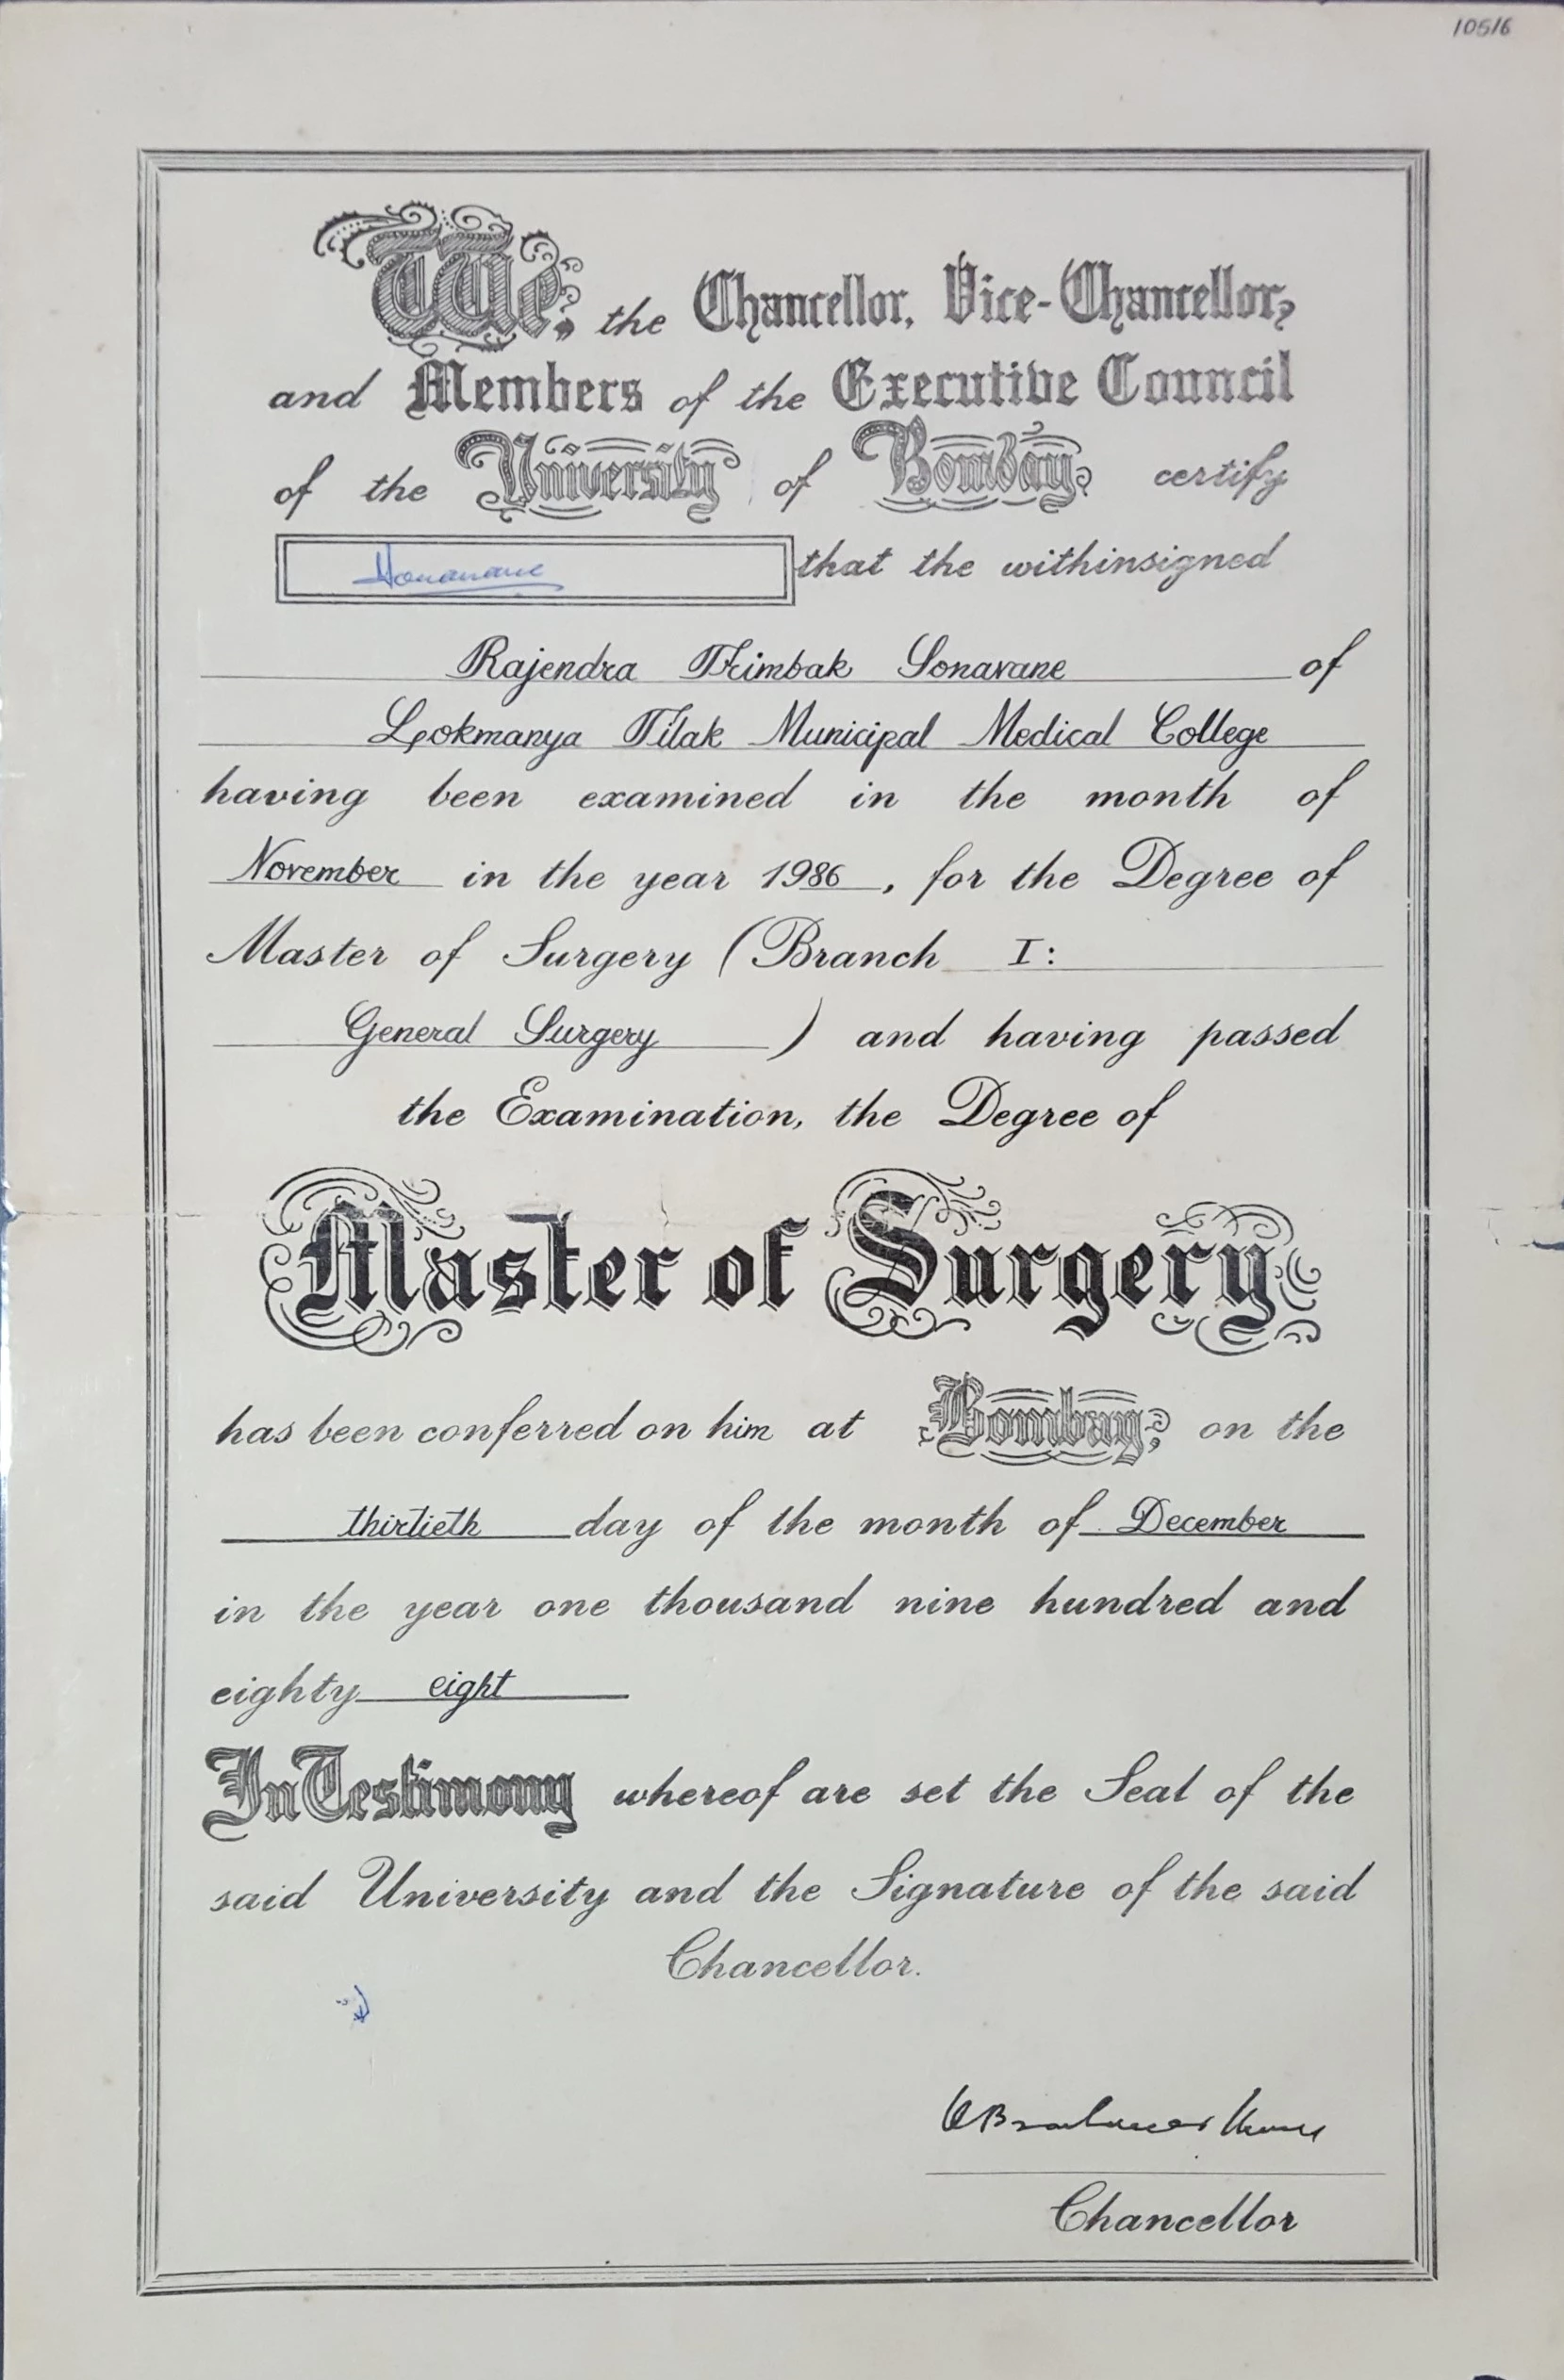 10516
We, the Chancellor, Vice-Chancellor,
and Members of the Executive Council
of the University of Bombay, certify
that the withinsigned
Rajendra Trimbak Sonavane of
Lokmanya Tilak Municipal Medical College
having been examined in the month of
November in the year 1986, for the Degree of
Master of Surgery (Branch I:
General Surgery) and having passed
the Examination, the Degree of
Master of Surgery
has been conferred on him at Bombay, on the
thirtieth day of the month of December
in the year one thousand nine hundred and
eighty eight
In Testimony whereof are set the Seal of the
said University and the Signature of the said
Chancellor.
Chancellor